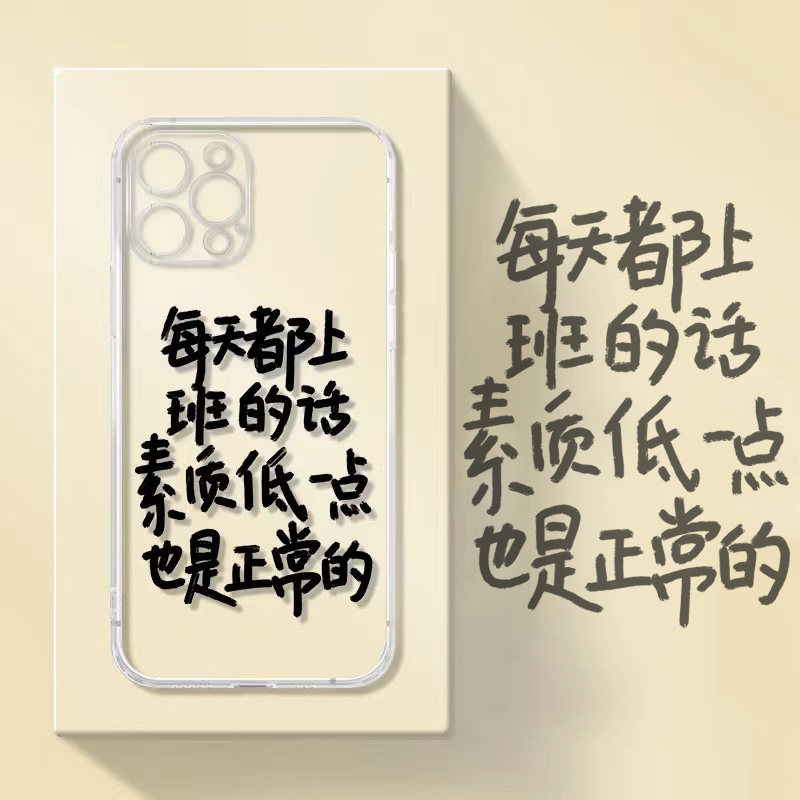 每天都上
班的话
素质低一点
也是正常的
每天都上
班的话
素质低一点
也是正常的